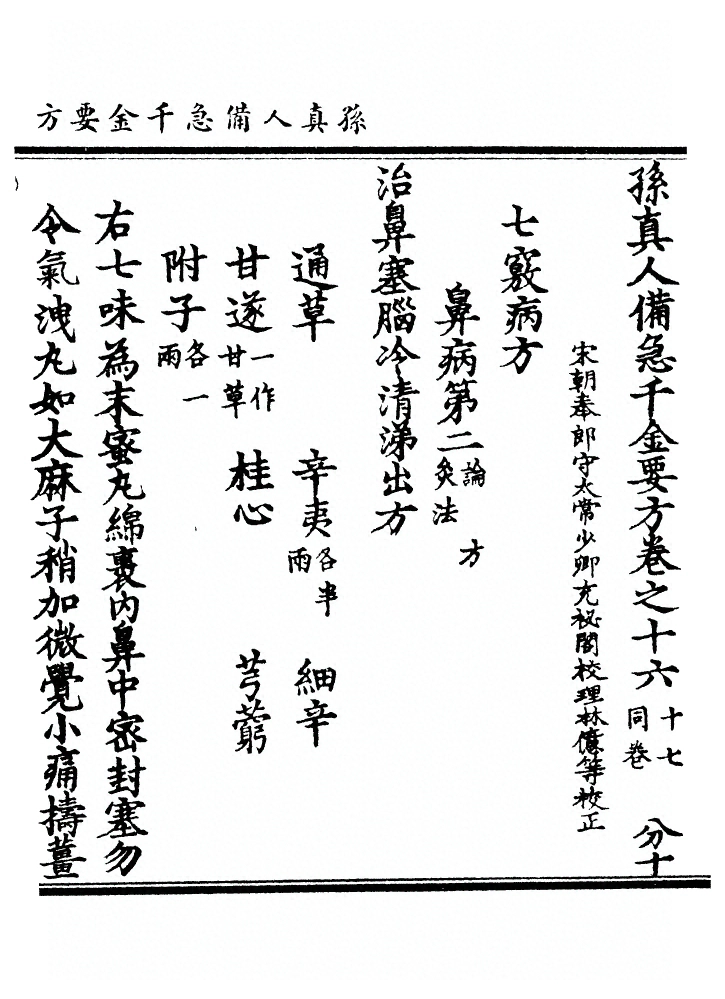 孫真人備急千金要方
孫真人備急千金要方卷之十六 十七同卷 分十
宋朝奉郎守太常少卿充祕閣校理林億等校正
七竅病方
鼻病第二 論 方 灸法
治鼻塞腦冷清涕出方
通草 辛夷各半兩 細辛
甘遂一作甘草 桂心 芎藭
附子各一兩
右七味為末蜜丸綿裹内鼻中密封塞勿
令氣洩丸如大麻子稍加微覺小痛擣薑